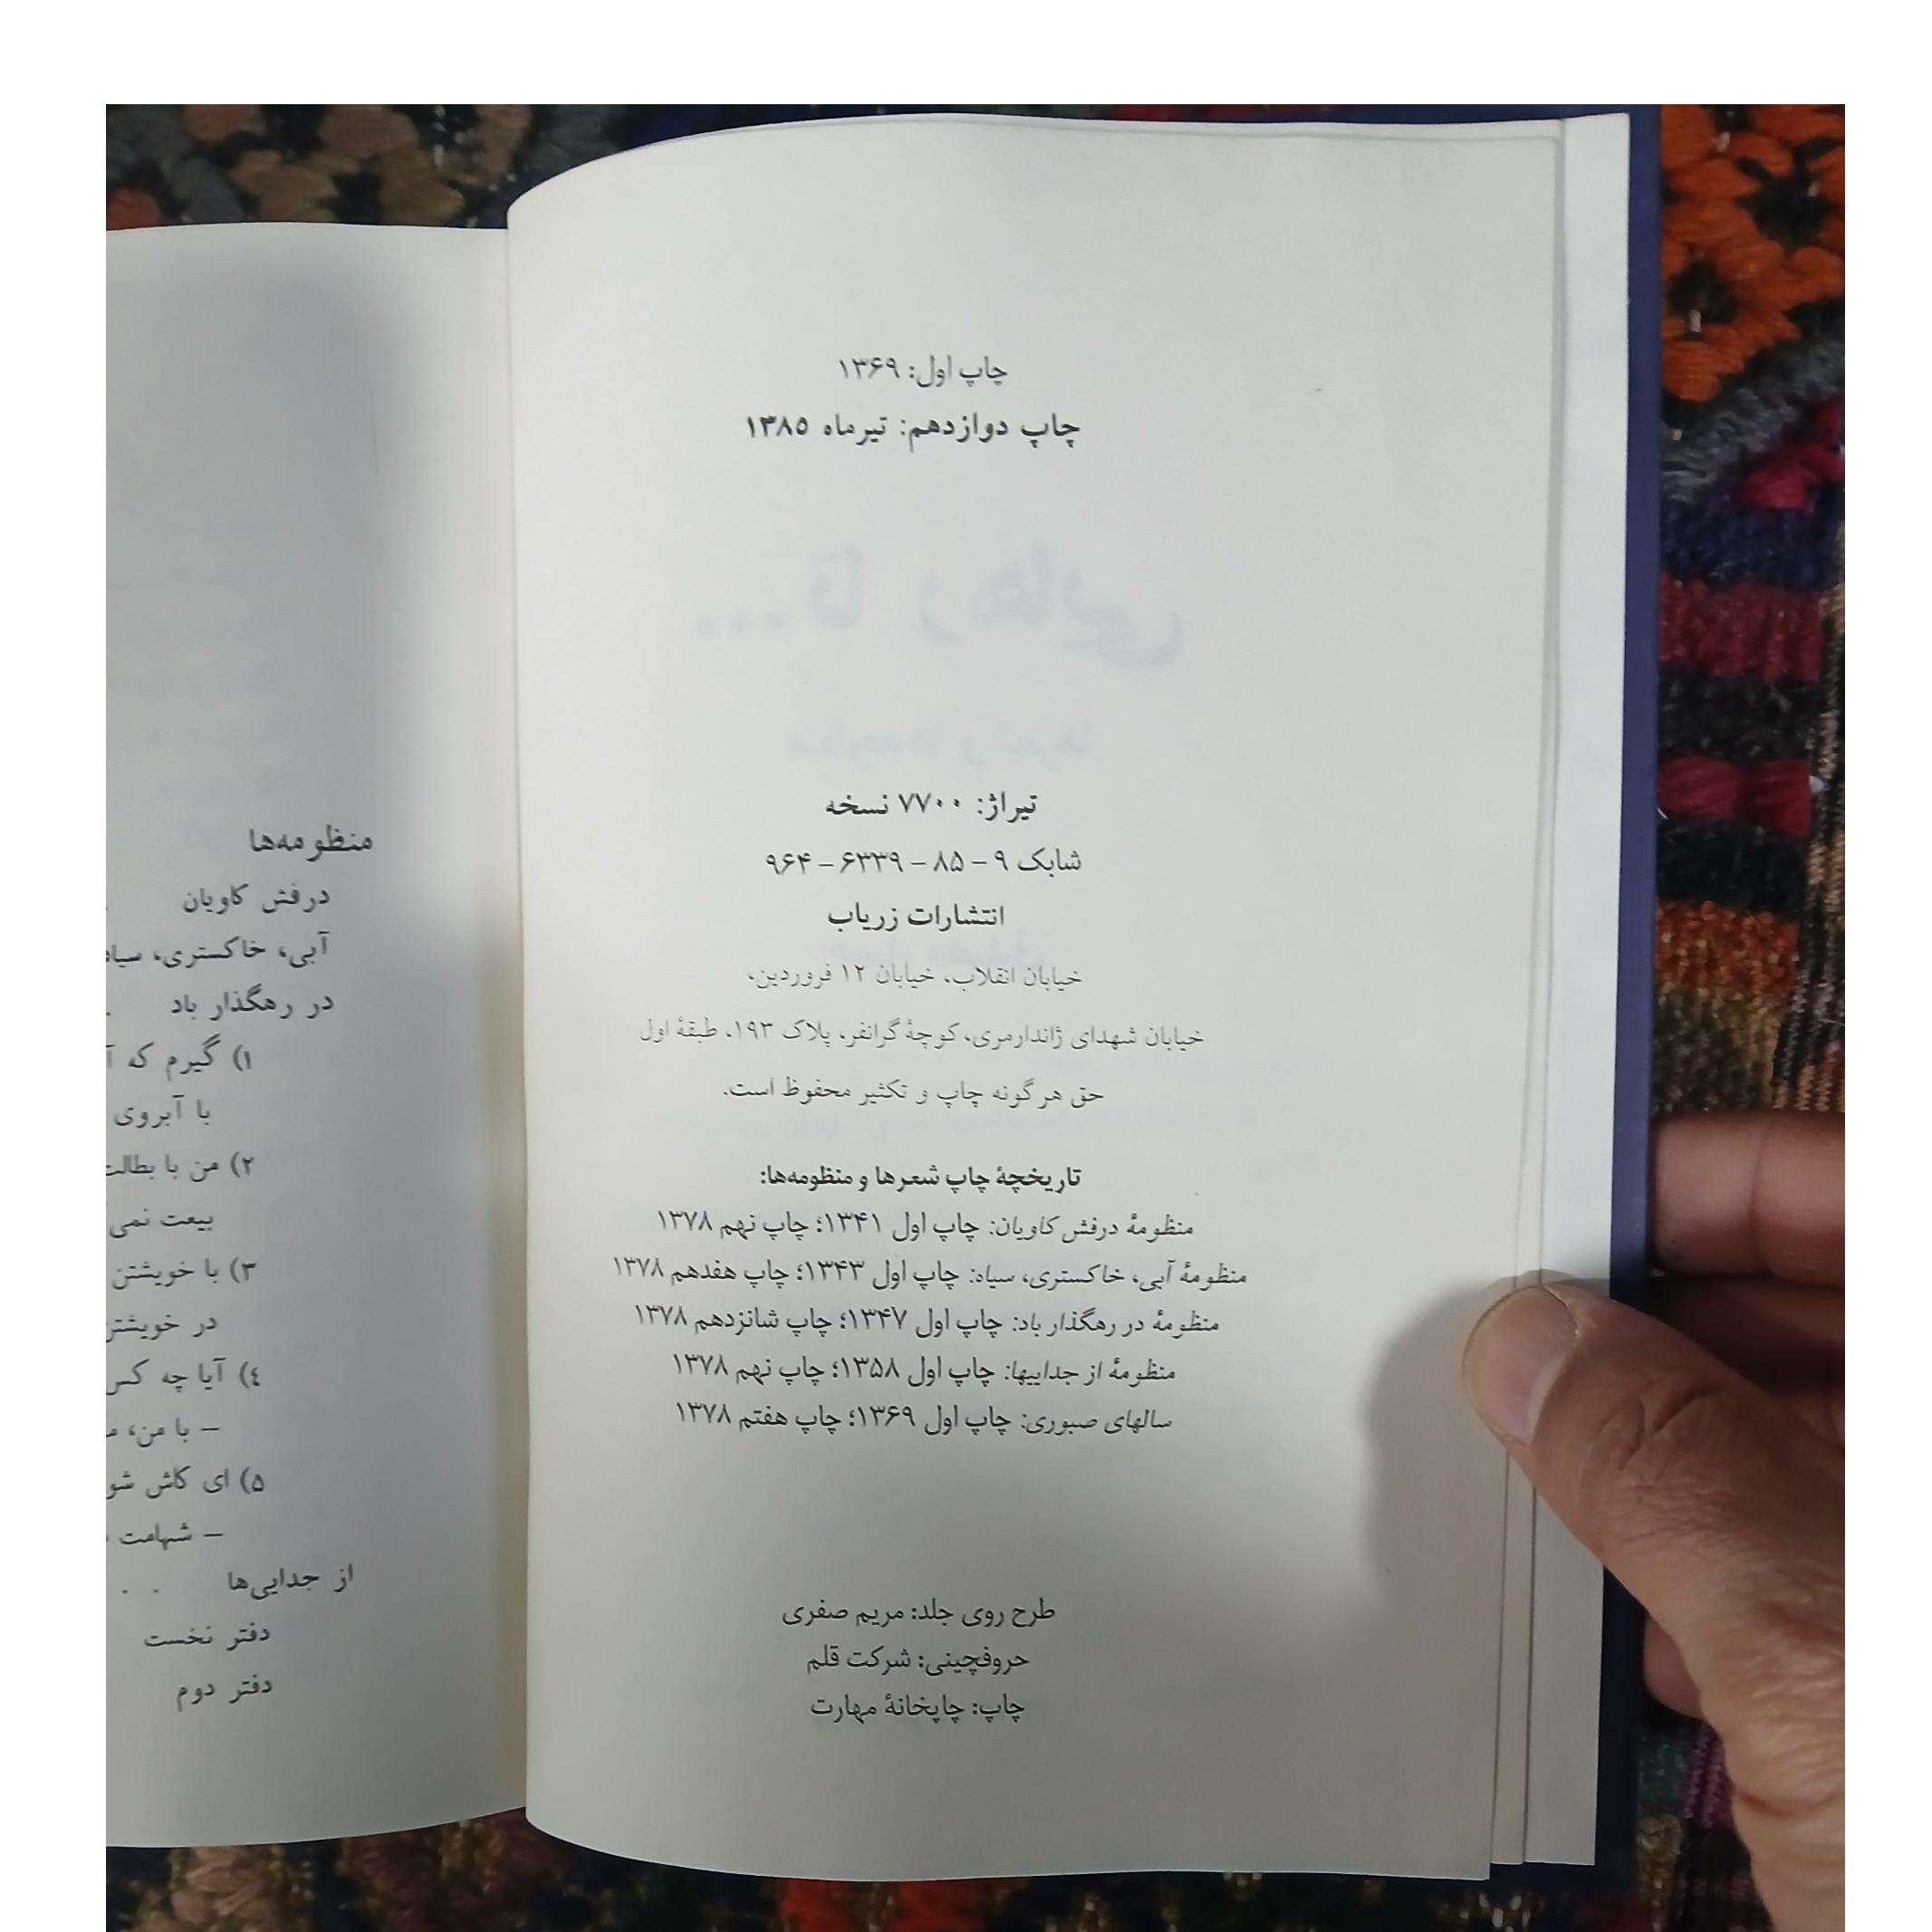 چاپ اول: ۱۳۶۹
چاپ دوازدهم: تیرماه ۱۳۸۵
تیراژ: ۷۷۰۰ نسخه
شابک ۹ – ۸۵ – ۶۳۳۹ – ۹۶۴
انتشارات زریاب
خیابان انقلاب، خیابان ۱۲ فروردین،
خیابان شهدای ژاندارمری، کوچهٔ گرانفر، پلاک ۱۹۳، طبقهٔ اول
حق هرگونه چاپ و تکثیر محفوظ است.
تاریخچهٔ چاپ شعرها و منظومه‌ها:
منظومهٔ درفش کاویان: چاپ اول ۱۳۴۱؛ چاپ نهم ۱۳۷۸
منظومهٔ آبی، خاکستری، سیاه: چاپ اول ۱۳۴۳؛ چاپ هفدهم ۱۳۷۸
منظومهٔ در رهگذار باد: چاپ اول ۱۳۴۷؛ چاپ شانزدهم ۱۳۷۸
منظومهٔ از جداییها: چاپ اول ۱۳۵۸؛ چاپ نهم ۱۳۷۸
سالهای صبوری: چاپ اول ۱۳۶۹؛ چاپ هفتم ۱۳۷۸
طرح روی جلد: مریم صفری
حروفچینی: شرکت قلم
چاپ: چاپخانهٔ مهارت
منظومه‌ها
درفش کاویان .
آبی، خاکستری، سیاه
در رهگذار باد .
۱) گیرم که
با آبروی
۲) من با بطالت
بیعت نمی
۳) با خویشتن
در خویشتن
۴) آیا چه کس
– با من،
۵) ای کاش
– شهامت
از جدایی‌ها . .
دفتر نخست
دفتر دوم